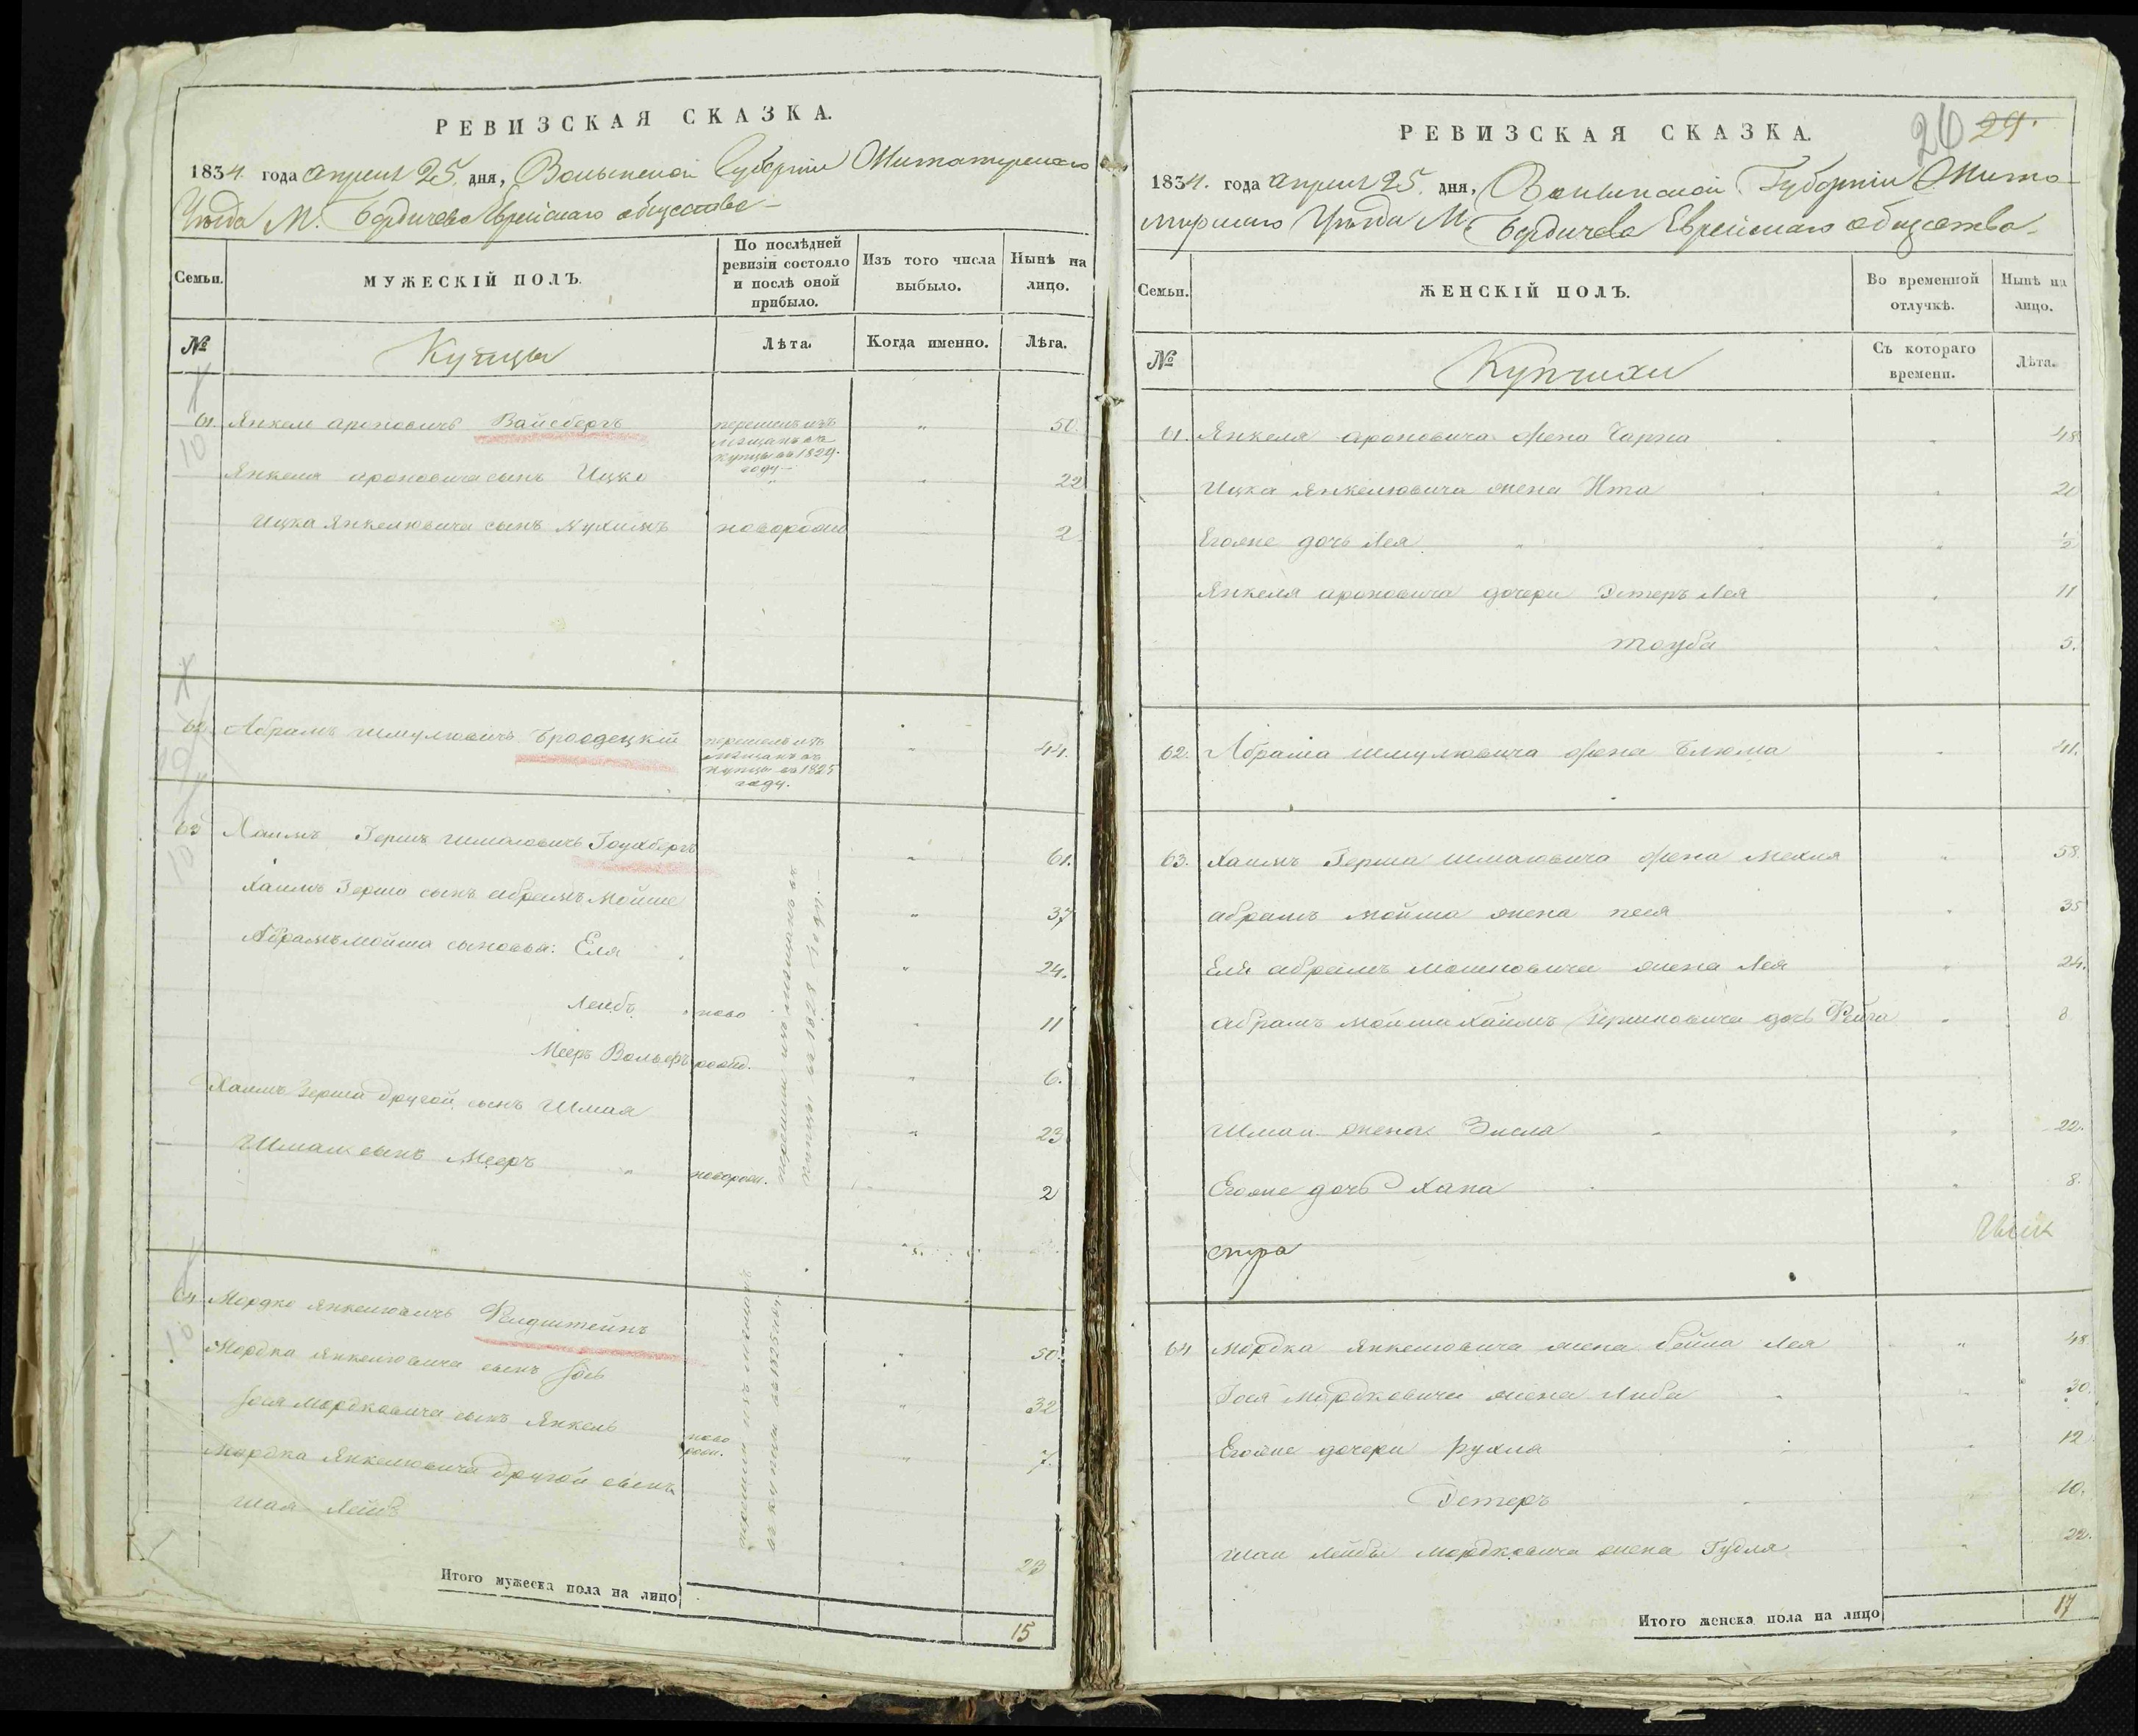 РЕВИЗСКАЯ СКАЗКА.
1834. года апреля 25. дня, Волынской Губерніи Житомирскаго
Уѣзда М. Бердичева Еврейскаго общества
Семьи.
МУЖЕСКІЙ ПОЛЪ.
По послѣдней ревизіи состояло и послѣ оной прибыло.
Изъ того числа выбыло.
Нынѣ на лицо.
№
Купцы
Лѣта.
Когда именно.
Лѣта.
61. Янкель Ароновичъ Вайсбергъ перешелъ изъ мещанъ въ купцы въ 1829. году " 50.
Янкеля Ароновича сынъ Ицко " 22
Ицка Янкелювича сынъ Нухимъ новорожд 2.
62. Абрамъ Шмулювичъ Бродецкій перешелъ изъ мещанъ въ купцы въ 1825 году. " 44.
63 Хаимъ Герша Шмаювичъ " 61.
Хаимъ Герша сынъ Абрамъ Мойше " 37
Абрамъ Мойша сыновья: Еля " 24.
Лейбъ ново " 11
Мееръ Вольфъ рожд. " 6.
Хаимъ Герша другой сынъ Шмая " 23
Шмаи сынъ Мееръ новорож. 2
перешли изъ мещанъ въ купцы въ 1828 году.
64 Мордко Янкелювичъ Фелдштейнъ " 50.
Мордка Янкелювича сынъ Іось " 32
Іося Мордковича сынъ Янкель ново рож. " 7.
Мордка Янкелювича другой сынъ
Шая Лейбъ " 23
перешли изъ мещанъ въ купцы въ 1825 году
Итого мужеска пола на лицо 15
РЕВИЗСКАЯ СКАЗКА.
26 29.
1834. года апреля 25. дня, Волынской Губерніи Жито-
мирскаго Уѣзда М. Бердичева Еврейскаго общества.
Семьи.
ЖЕНСКІЙ ПОЛЪ.
Во временной отлучкѣ.
Нынѣ на лицо.
№
Купчихи
Съ котораго времени.
Лѣта.
61. Янкеля Ароновича жена Чарна " 48
Ицка Янкелювича жена Ита " 20
Егоже дочь Лея " ½
Янкеля Ароновича дочери Эстеръ Лея " 11
Тоуба " 5.
62. Абрама Шмулювича жена Блюма " 41.
63. Хаимъ Герша Шмаювича жена Мехля " 58.
Абрамъ Мойша жена Песя " 35
Еля Абрамъ Мошковича жена Лея " 24.
Абрамъ Мойша Хаимъ Гершковича дочь Фейга " 8
Шмаи жена Зисла " 22.
Егоже дочь Хана " 8.
64 Мордка Янкелювича жена Бейла Лея " 48
Іося Мордковича жена Либа " 30.
Егоже дочери Рухля " 12
Эстеръ 10.
Шаи Лейбы Мордковича жена Гудля 22.
Итого женска пола на лицо 17